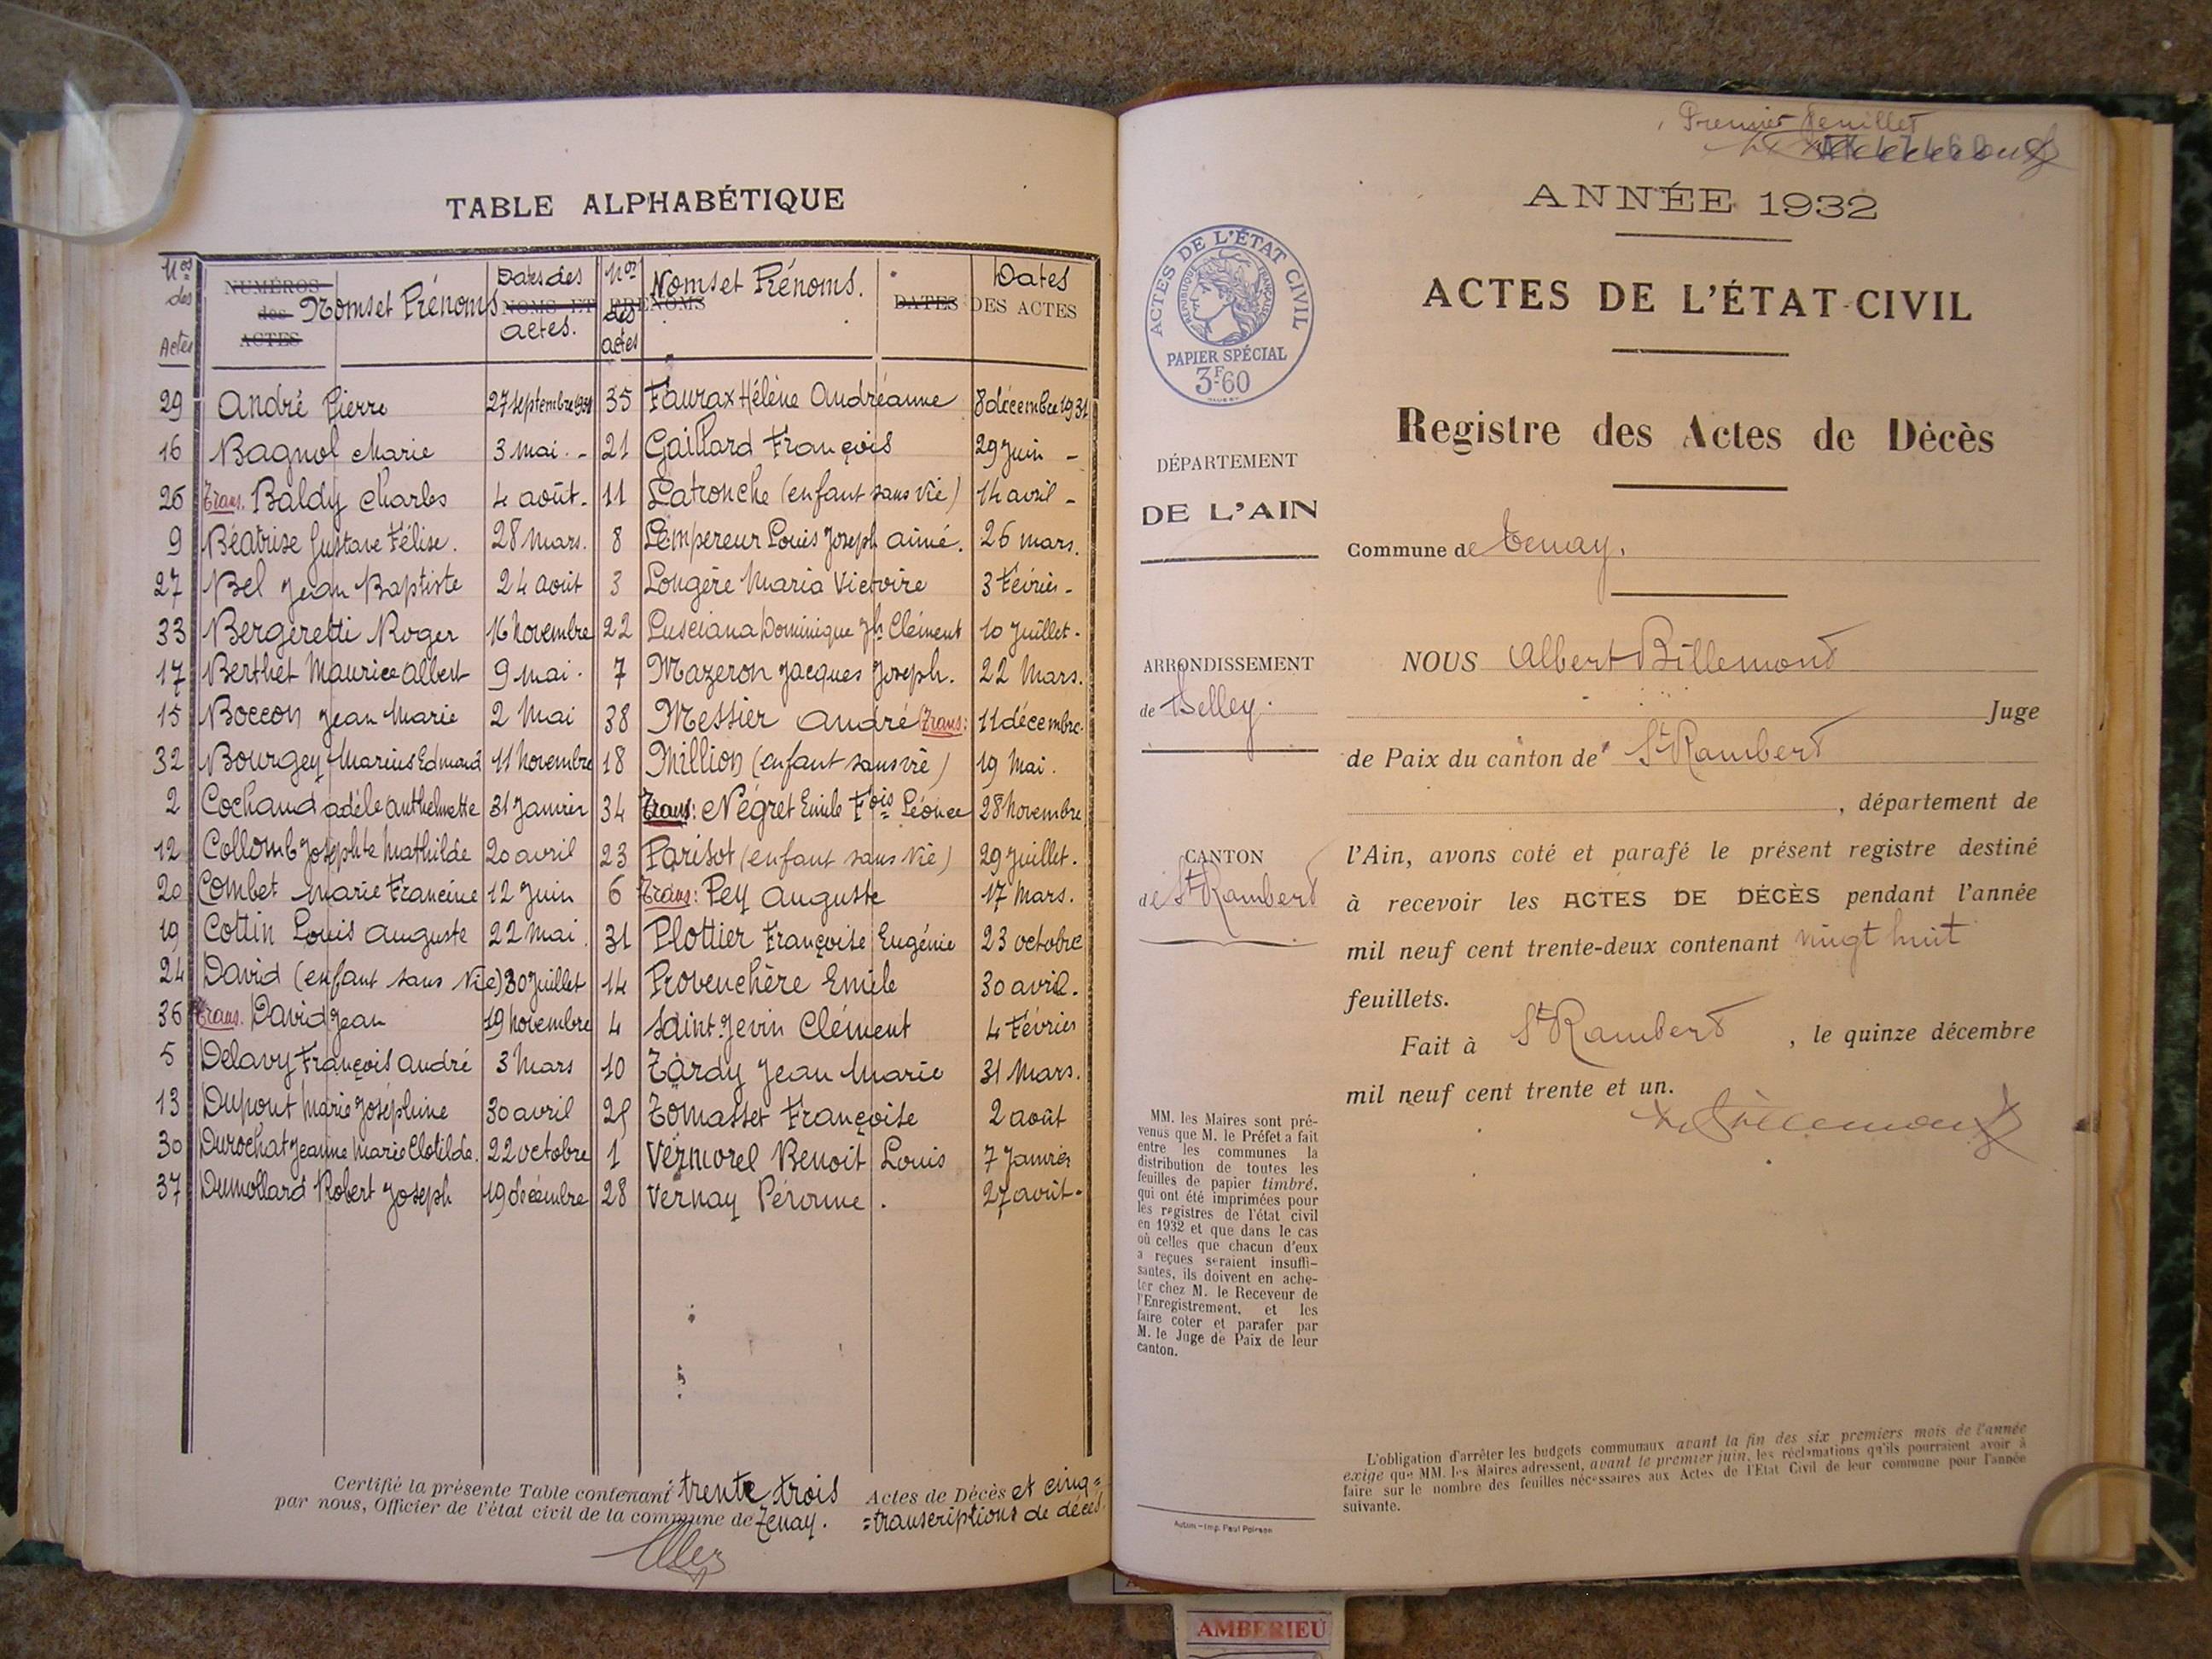 TABLE ALPHABÉTIQUE
Nos des Actes
NUMÉROS des ACTES
Noms et Prénoms
Dates des actes.
NOMS ET PRÉNOMS
Nos des actes
Noms et Prénoms.
DATES
Dates
DES ACTES
29 André Pierre 27 septembre 1931
16 Bagnol Marie 3 mai. -
26 Trans. Baldy Charles 4 août. -
9 Béatrise Gustave Félise. 28 mars.
27 Bel Jean Baptiste 24 août
33 Bergeretti Roger 16 novembre
17 Berthet Maurice Albert 9 mai.
15 Boccon Jean Marie 2 Mai
32 Bourgey Marius Edmond 11 novembre
2 Cochaud adèle anthelmette 31 Janvier
12 Collomb Josephte Mathilde 20 avril
20 Combet Marie Francine 12 Juin
19 Cottin Louis Auguste 22 Mai.
24 David (enfant sans Vie) 30 Juillet
36 Trans. David Jean 19 novembre
5 Delavy François André 3 Mars
13 Dupont Marie Joséphine 30 avril
30 Durochat Jeanne Marie Clotilde. 22 octobre
37 Dumollard Robert Joseph 19 décembre
35 Faurax Hélène Andréanne 8 décembre 1931
21 Gaillard François 29 Juin -
11 Latronche (enfant sans vie) 14 avril -
8 Lempereur Louis Joseph aimé. 26 mars.
3 Longère Maria Victoire 3 Février -
22 Lusciana Dominique Jh Clément 10 Juillet -
7 Mazeron Jacques Joseph. 22 Mars.
38 Messier André Trans: 11 décembre.
18 Million (enfant sans vie) 19 Mai.
34 Trans: Négret Emile Fois Léonce 28 Novembre
23 Parisot (enfant sans vie) 29 Juillet.
6 Trans: Pey Auguste 17 Mars.
31 Plottier Françoise Eugénie 23 octobre
14 Provenchère Emile 30 avril.
4 Saint-Jevin Clément 4 Février
10 Tardy Jean Marie 31 Mars.
25 Tomasset Françoise 2 août
1 Vermorel Benoit Louis 7 Janvier
28 Vernay Péronne. 27 août -
Certifié la présente Table contenant trente trois Actes de Décès et cinq =
par nous, Officier de l'état civil de la commune de Tenay. = transcriptions de décès.
Premier feuillet
ANNÉE 1932
ACTES DE L'ÉTAT-CIVIL
ACTES DE L'ÉTAT CIVIL
RÉPUBLIQUE FRANÇAISE
PAPIER SPÉCIAL
3F.60
Registre des Actes de Décès
DÉPARTEMENT
DE L'AIN
Commune de Tenay.
ARRONDISSEMENT
de Belley.
NOUS Albert Billemond
Juge
de Paix du canton de St Rambert
, département de
CANTON
de St Rambert
l'Ain, avons coté et parafé le présent registre destiné
à recevoir les ACTES DE DÉCÈS pendant l'année
mil neuf cent trente-deux contenant vingt huit
feuillets.
Fait à St Rambert , le quinze décembre
mil neuf cent trente et un.
MM. les Maires sont pré-
venus que M. le Préfet a fait
entre les communes la
distribution de toutes les
feuilles de papier timbré,
qui ont été imprimées pour
les registres de l'état civil
en 1932 et que dans le cas
où celles que chacun d'eux
a reçues seraient insuffi-
santes, ils doivent en ache-
ter chez M. le Receveur de
l'Enregistrement, et les
faire coter et parafer par
M. le Juge de Paix de leur
canton.
L'obligation d'arrêter les budgets communaux avant la fin des six premiers mois de l'année
exige que MM. les Maires adressent, avant le premier juin, les réclamations qu'ils pourraient avoir à
faire sur le nombre des feuilles nécessaires aux Actes de l'Etat Civil de leur commune pour l'année
suivante.
Autun - Imp. Paul Poirson
AMBERIEU